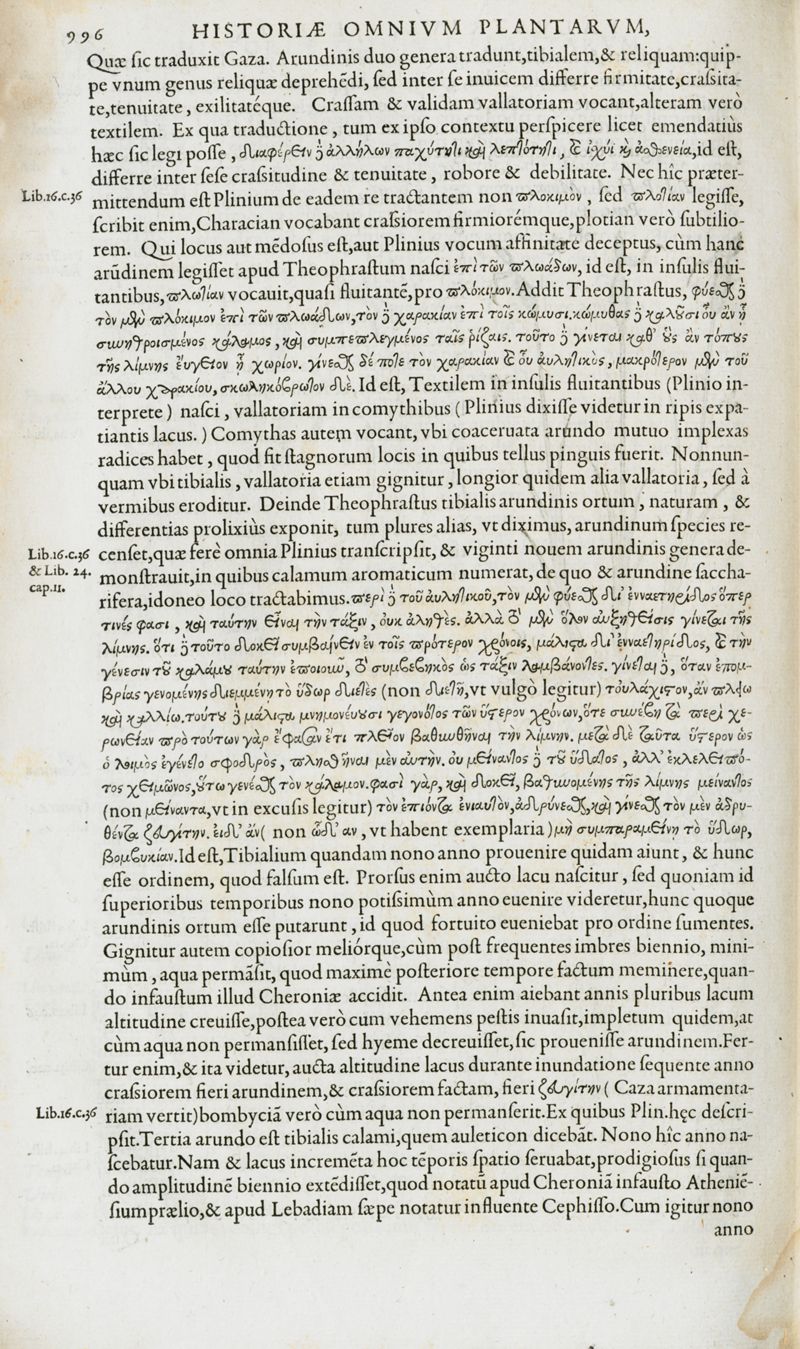 996 HISTORIÆ OMNIVM PLANTARVM,
Quæ ſic traduxit Gaza. Arundinis duo genera tradunt,tibialem,& reliquam:quip-
pe vnum genus reliquæ deprehẽdi, ſed inter ſe inuicem differre firmitate,craſsita-
te,tenuitate, exilitatéque. Craſſam & validam vallatoriam vocant,alteram verò
textilem. Ex qua traductione , tum ex ipſo contextu perſpicere licet emendatiùs
hæc ſic legi poſſe , διαφέρειν ἢ ἀλλήλων παχύτητι καὶ λεπτότητι, καὶ ἰχύι καὶ ἀσθενεία,id eſt,
differre inter ſeſe craſsitudine & tenuitate , robore & debilitate. Nec hîc præter-
Lib.16.c.36 mittendum eſt Plinium de eadem re tractantem non πλοκιμὸν , ſed πλοτίαν legiſſe,
ſcribit enim,Characian vocabant craſsiorem firmiorémque,plotian verò ſubtilio-
rem. Qui locus aut mẽdoſus eſt,aut Plinius vocum affinitate deceptus, cùm hanc
arũdinem legiſſet apud Theophraſtum naſci ἐπὶ τῶν πλωάδων, id eſt, in inſulis flui-
tantibus,πλωτίαν vocauit,quaſi fluitantẽ,pro πλόκιμον. Addit Theophraſtus, φύεσθαι δὲ
τὸν μὲν πλόκιμον ἐπὶ τῶν πλωάδων,τὸν δὲ χαρακίαν ἐπὶ τοῖς κώμυσι.κώμυθας δὲ καλοῦσι οὗ ἂν ᾖ
συνηθροισμένος κάλαμος , καὶ συμπεπλεγμένος ταῖς ῥίζαις. τοῦτο δὲ γίνεται καθ᾽ οὓς ἂν τόπους
τῆς λίμνης εὔγειον ᾖ χωρίον. γίνεσθαι δέ ποτε τὸν χαρακίαν καὶ οὗ ἀυλητικὸς , μακρότερον μὲν τοῦ
ἄλλου χαρακίου, σκωληκόβρωτον δὲ. Id eſt, Textilem in inſulis fluitantibus (Plinio in-
terprete) naſci , vallatoriam in comythibus (Plinius dixiſſe videtur in ripis expa-
tiantis lacus.) Comythas autem vocant, vbi coaceruata arundo mutuo implexas
radices habet , quod fit ſtagnorum locis in quibus tellus pinguis fuerit. Nonnun-
quam vbi tibialis , vallatoria etiam gignitur , longior quidem alia vallatoria , ſed à
vermibus eroditur. Deinde Theophraſtus tibialis arundinis ortum , naturam , &
differentias prolixiùs exponit, tum plures alias, vt diximus, arundinum ſpecies re-
Lib.16.c.36 cenſet,quæ ferè omnia Plinius tranſcripſit, & viginti nouem arundinis genera de-
& Lib. 24. monſtrauit,in quibus calamum aromaticum numerat, de quo & arundine ſaccha-
cap.11. rifera,idoneo loco tractabimus. περὶ δὲ τοῦ ἀυλητικοῦ,τὸν μὲν φύεσθαι δι᾽ ἐνναετηρίδος ὅπερ
τινές φασι , καὶ ταύτην εἶναι τὴν τάξιν , οὐκ ἀληθὲς. ἀλλὰ τὸ μὲν ὅλον αὐξηθείσις γίνεται τῆς
λίμνης. ὅτι δὲ τοῦτο δοκεῖ συμβαίνειν ἐν τοῖς πρότερον χρόνοις, μάλιστα δι᾽ ἐνναετηρίδος, καὶ τὴν
γένεσιν τοῦ καλάμου ταύτην ἐποιουν, τὸ συμβεβηκὸς ὡς τάξιν λαμβάνοντες. γίνεται δὲ, ὅταν ἐπομ-
βρίας γενομένης διεμμένη τὸ ὕδωρ διετὲς (non διετῆ,vt vulgò legitur) τοὐλάχιστον,ἂν πλείω
καὶ καλλίω.τούτου δὲ μάλιστα μνημονεύουσι γεγονότος τῶν ὕστερον χρόνων,ὅτε συνέβη τὰ περὶ χε-
ρωνείαν πρὸ τούτων γὰρ ἔφασαν ἔτι πλεῖον βαθυνθῆναι τὴν λίμνην. μετὰ δὲ ταῦτα ὕστερον ὡς
ὁ λοιμὸς ἐγένετο σφοδρὸς , πλησθῆναι μὲν αὐτὴν. οὐ μείναντος δὲ τοῦ ὕδατος , ἀλλ᾽ ἐκλελειπό-
τος χειμῶνος,οὕτω γενέσθαι τὸν κάλαμον.φασὶ γὰρ, καὶ δοκεῖ, βαθυνομένης τῆς λίμνης μείναντος
(non μείναντα,vt in excuſis legitur) τὸν ἐπιόντα ἐνιαυτὸν,ἁδρύνεσθαι,καὶ γίνεσθαι τὸν μὲν ἁδρυ-
θέντα ζευγίτην. εἰδ᾽ ἂν( non ᾧδ᾽ αν , vt habent exemplaria)μὴ συμπαραμείνη τὸ ὕδωρ,
βομβυκίαν.Id eſt,Tibialium quandam nono anno prouenire quidam aiunt, & hunc
eſſe ordinem, quod falſum eſt. Prorſus enim aucto lacu naſcitur , ſed quoniam id
ſuperioribus temporibus nono potiſsimùm anno euenire videretur,hunc quoque
arundinis ortum eſſe putarunt , id quod fortuito eueniebat pro ordine ſumentes.
Gignitur autem copioſior meliórque,cùm poſt frequentes imbres biennio, mini-
mùm , aqua permãſit, quod maximè poſteriore tempore factum meminere,quan-
do infauſtum illud Cheroniæ accidit. Antea enim aiebant annis pluribus lacum
altitudine creuiſſe,poſtea verò cum vehemens peſtis inuaſit,impletum quidem,at
cùm aqua non permanſiſſet, ſed hyeme decreuiſſet, ſic proueniſſe arundinem.Fer-
tur enim,& ita videtur, aucta altitudine lacus durante inundatione ſequente anno
craſsiorem fieri arundinem,& craſsiorem factam, fieri ζευγίτην ( Caza armamenta-
Lib.16.c.36 riam vertit)bombyciã verò cùm aqua non permanſerit.Ex quibus Plin.hęc deſcri-
pſit.Tertia arundo eſt tibialis calami,quem auleticon dicebãt. Nono hîc anno na-
ſcebatur.Nam & lacus incremẽta hoc tẽporis ſpatio ſeruabat,prodigioſus ſi quan-
do amplitudinẽ biennio extẽdiſſet,quod notatũ apud Cheroniã infauſto Atheniẽ-
ſium prælio,& apud Lebadiam ſæpe notatur influente Cephiſſo.Cum igitur nono
anno